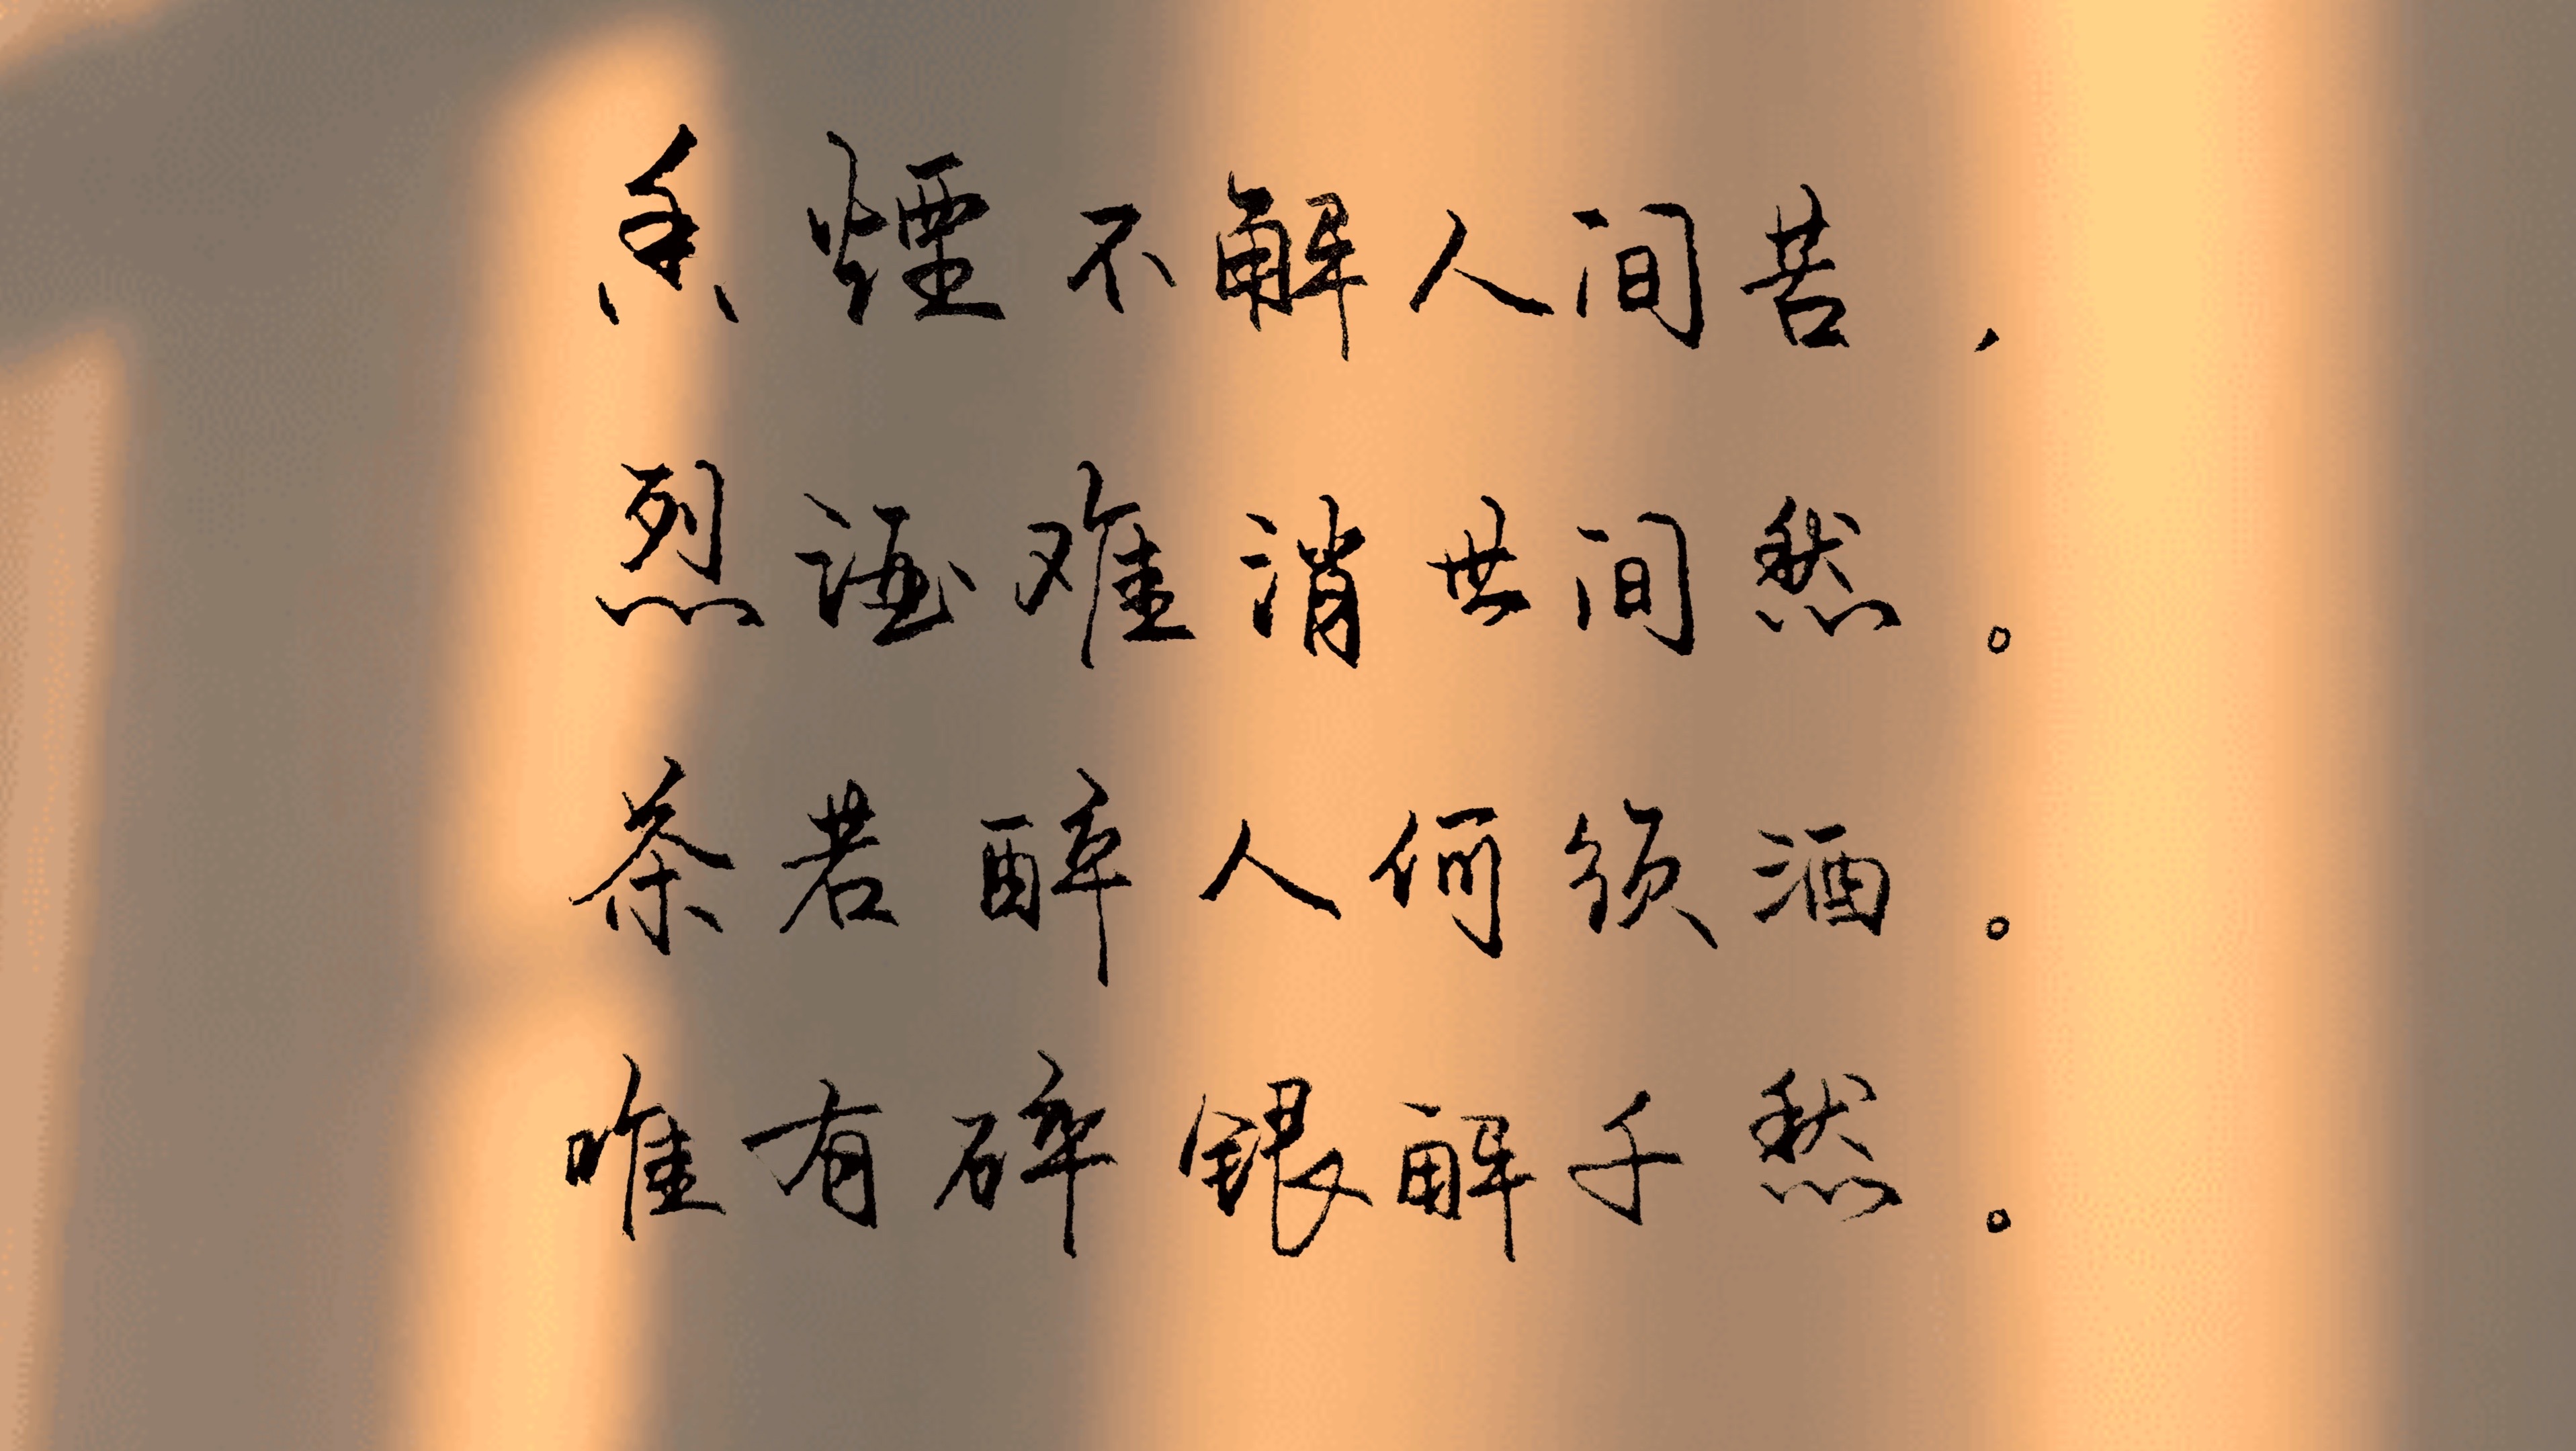 香煙不解人间苦，
烈酒难消世间愁。
茶若醉人何须酒。
唯有碎银解千愁。